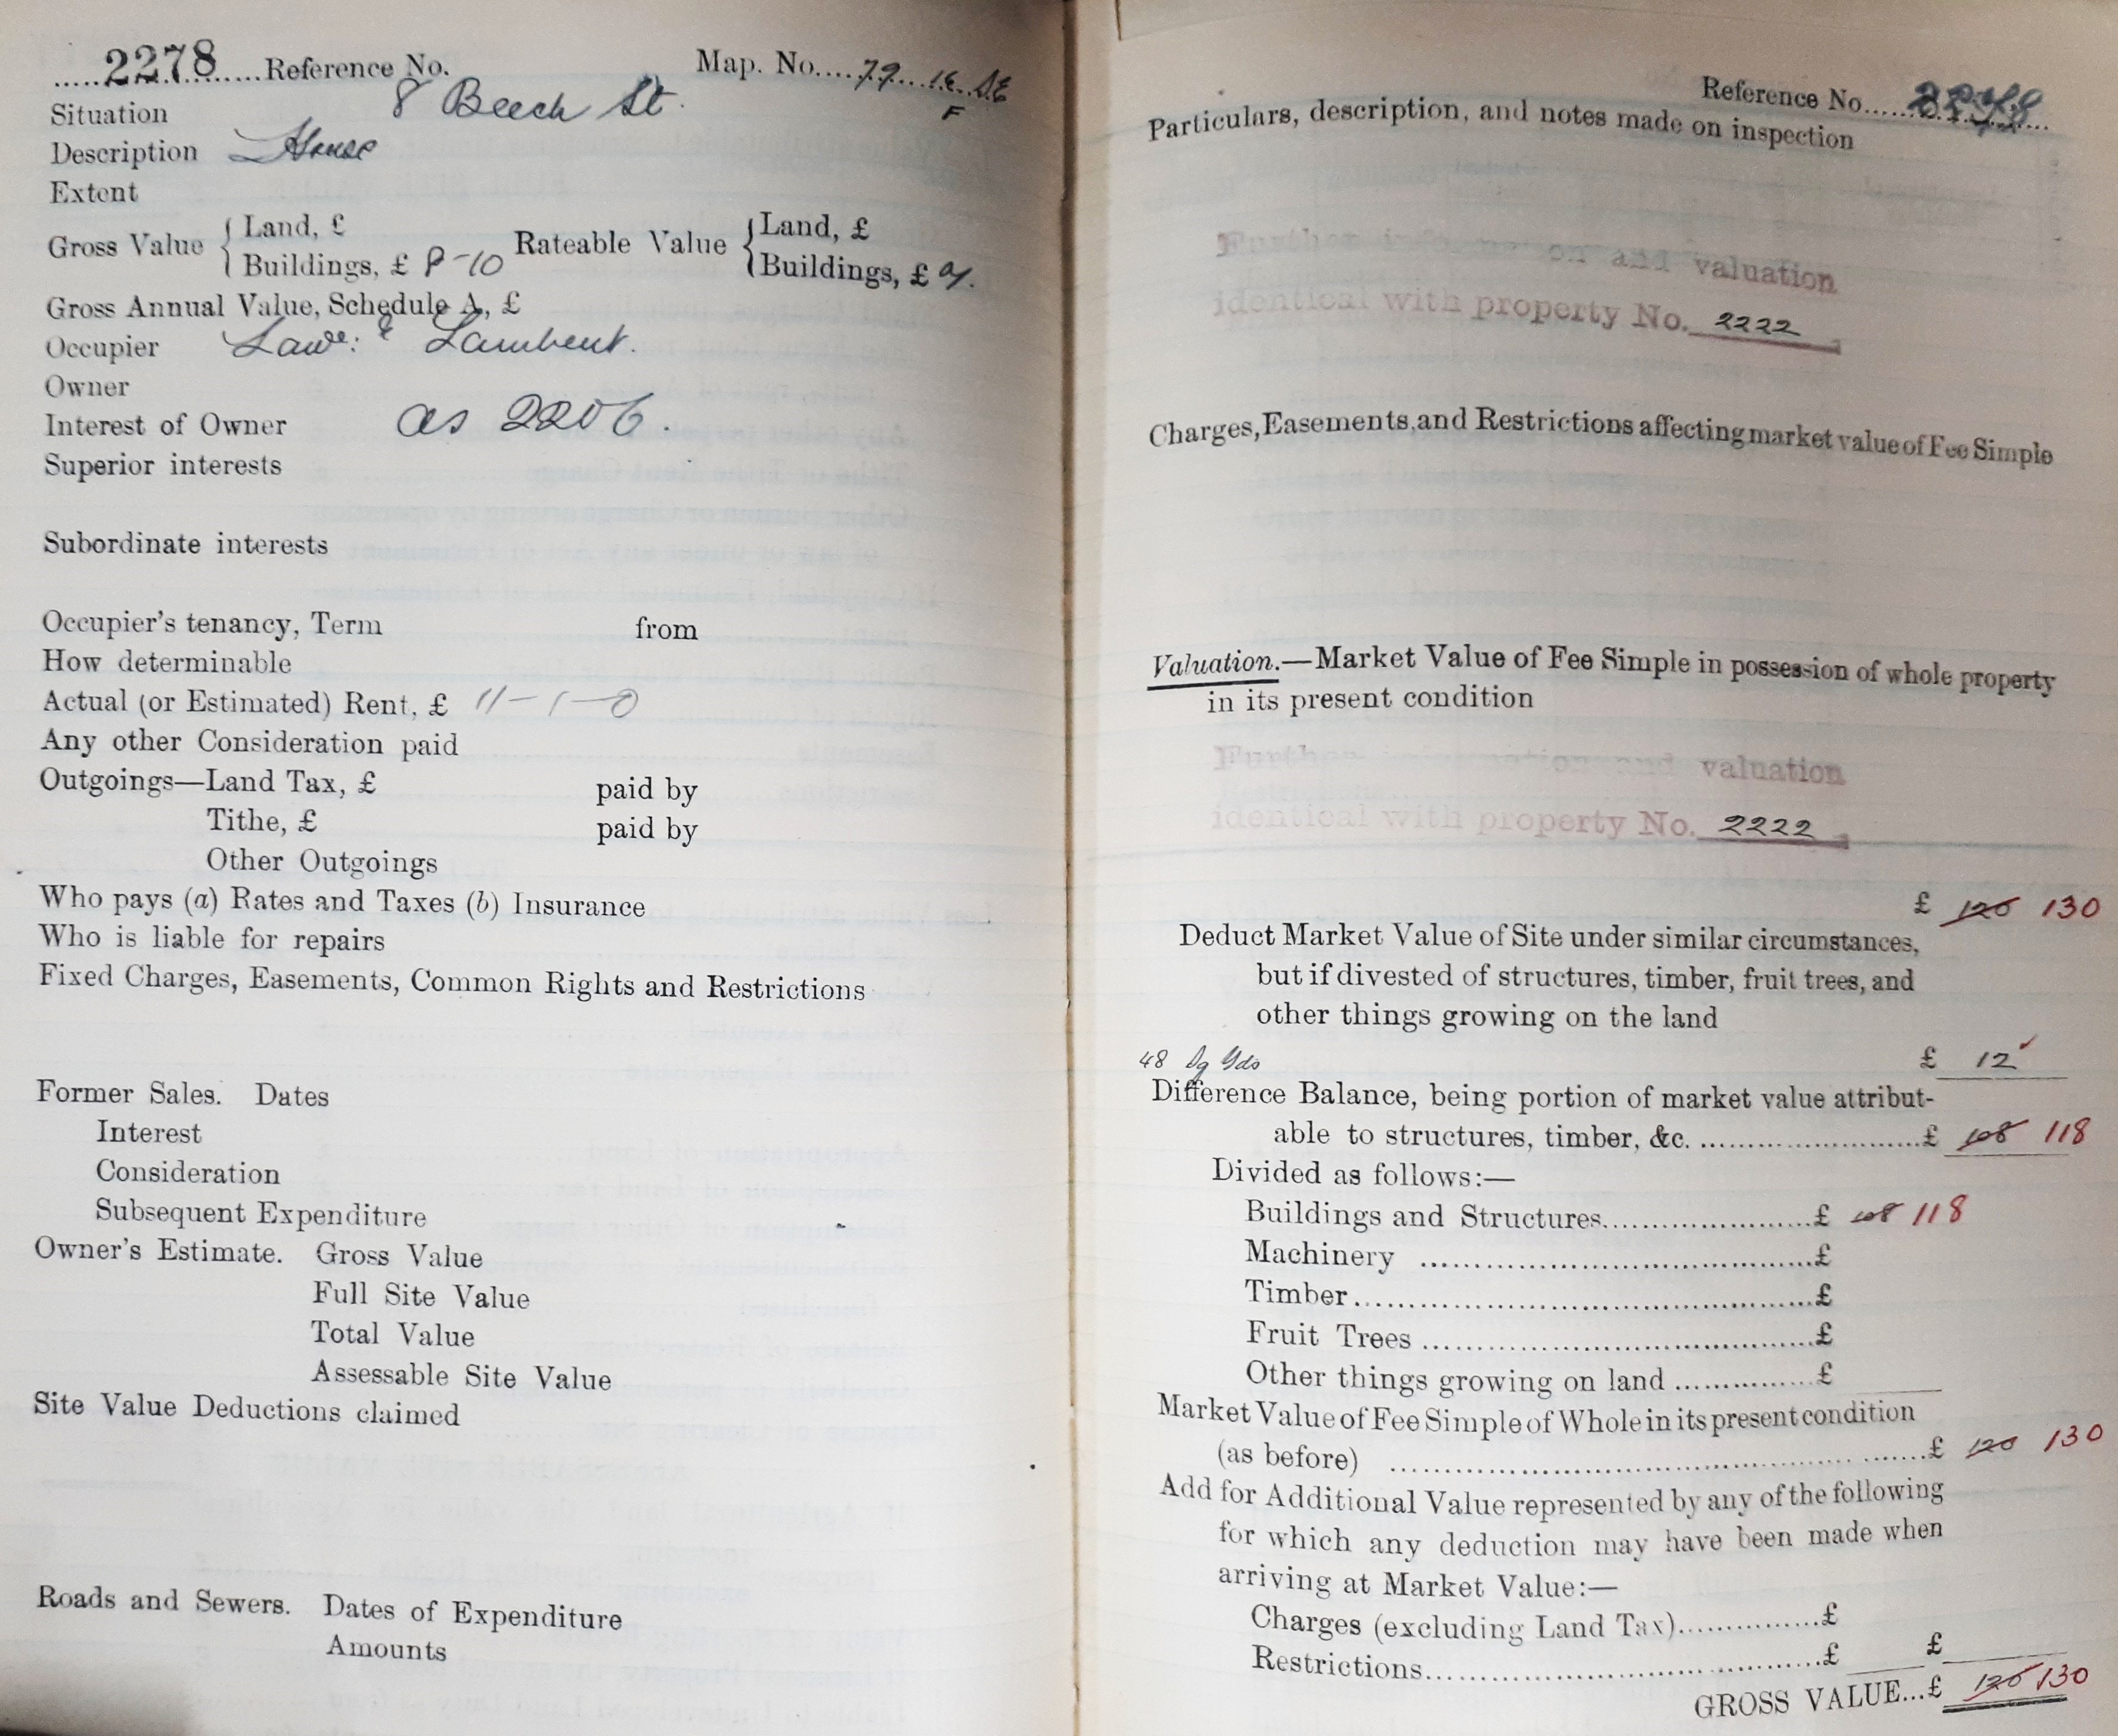 .....2278.......Reference No. Map. No....79...16...SE
F
Situation 8 Beech St.
Description House
Extent
Gross Value { Land, £ Rateable Value { Land, £
Buildings, £ 8-10 Buildings, £
Gross Annual Value, Schedule A, £
Occupier Lawe: Lambent.
Owner
Interest of Owner as 2206.
Superior interests
Subordinate interests
Occupier's tenancy, Term from
How determinable
Actual (or Estimated) Rent, £ 11-1-0
Any other Consideration paid
Outgoings—Land Tax, £ paid by
Tithe, £ paid by
Other Outgoings
Who pays (a) Rates and Taxes (b) Insurance
Who is liable for repairs
Fixed Charges, Easements, Common Rights and Restrictions
Former Sales. Dates
Interest
Consideration
Subsequent Expenditure
Owner's Estimate. Gross Value
Full Site Value
Total Value
Assessable Site Value
Site Value Deductions claimed
Roads and Sewers. Dates of Expenditure
Amounts
Reference No.....2278...
Particulars, description, and notes made on inspection
Further information and valuation
identical with property No. 2222
Charges, Easements, and Restrictions affecting market value of Fee Simple
Valuation.—Market Value of Fee Simple in possession of whole property
in its present condition
Further information and valuation
identical with property No. 2222
£ 120 130
Deduct Market Value of Site under similar circumstances,
but if divested of structures, timber, fruit trees, and
other things growing on the land
48 Sq Yds £ 12
Difference Balance, being portion of market value attribut-
able to structures, timber, &c. ........................£ 108 118
Divided as follows:—
Buildings and Structures......................£ 108 118
Machinery ........................................£
Timber..............................................£
Fruit Trees ........................................£
Other things growing on land ...............£
Market Value of Fee Simple of Whole in its present condition
(as before) ........................................................£ 120 130
Add for Additional Value represented by any of the following
for which any deduction may have been made when
arriving at Market Value:—
Charges (excluding Land Tax)...............£
Restrictions........................................£ £
GROSS VALUE...£ 120 130